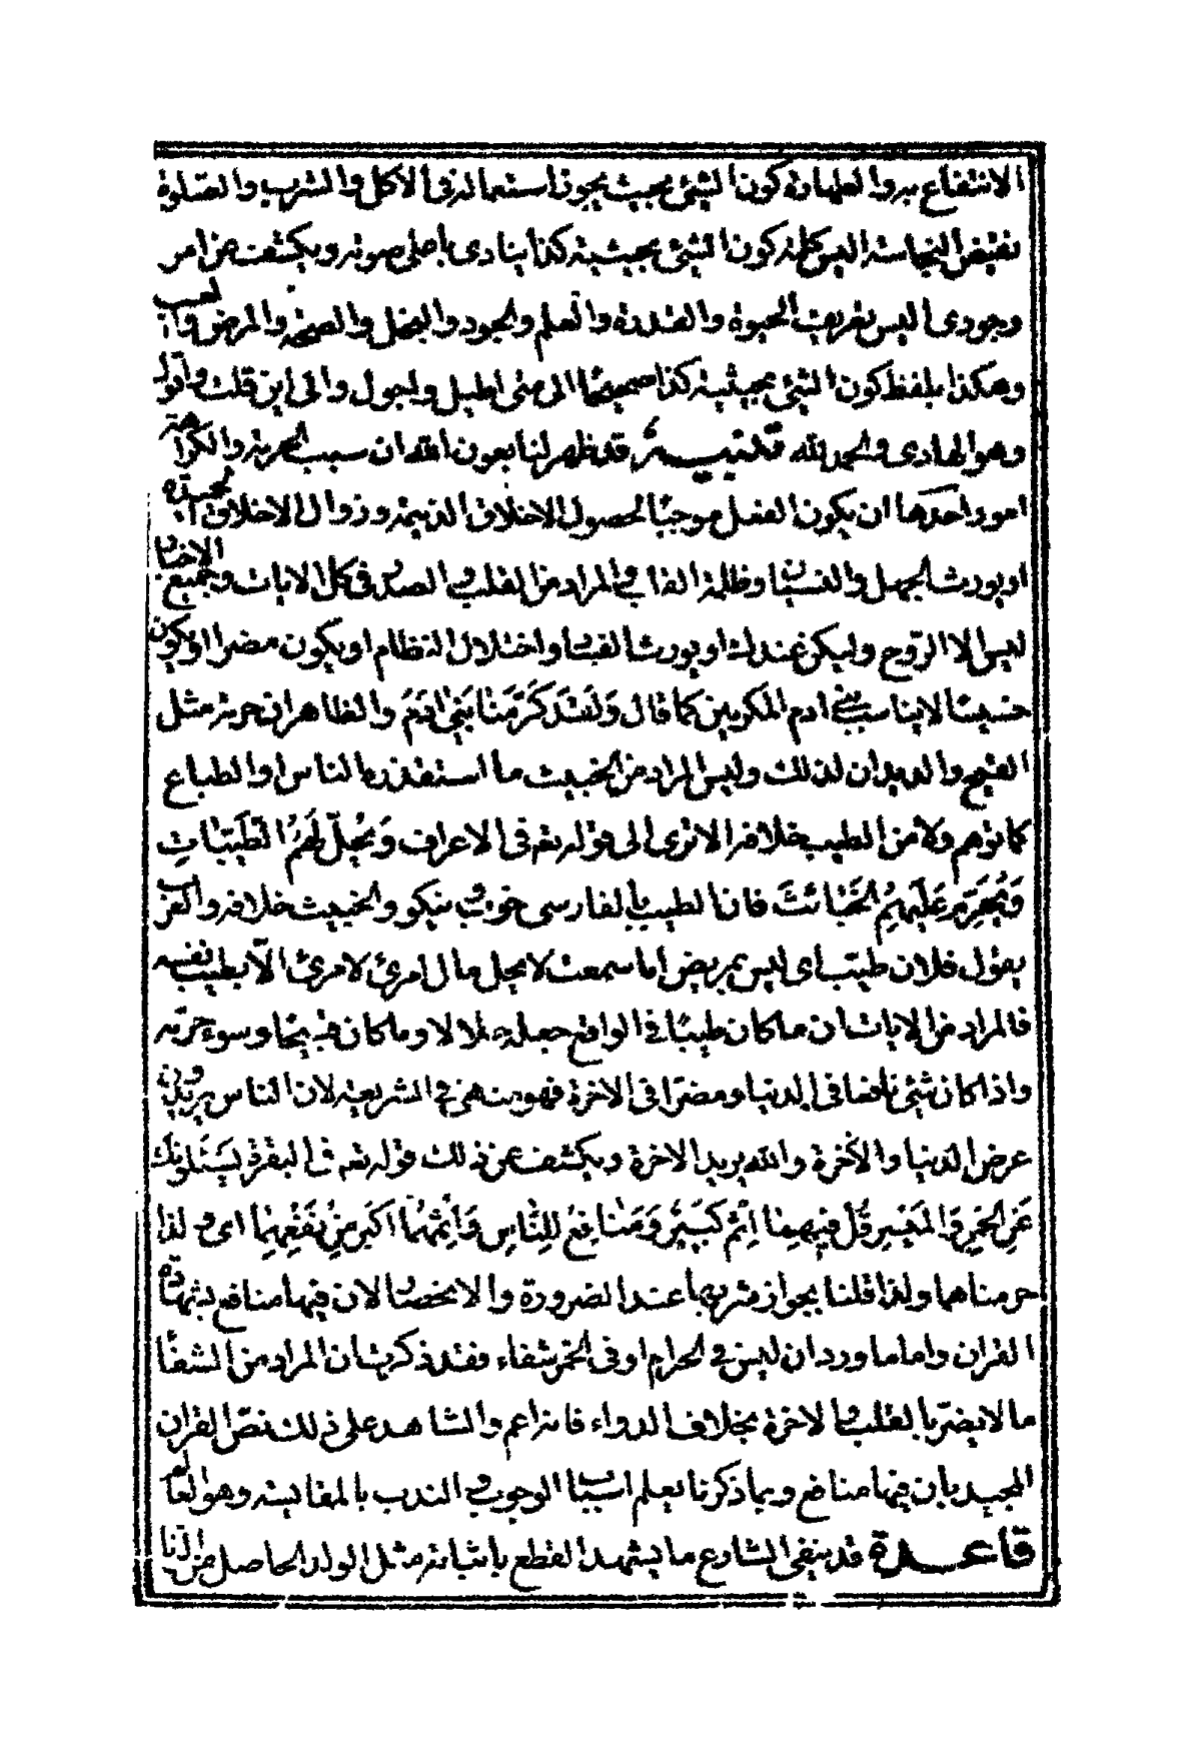 الانتفاع به والطهارة كون الشئ بحيث يجوز استعماله فى الاكل والشرب والصلوة
نقيض النجاسة اليس كلمة كون الشئ بحيثية كذا ينادى باعلى صوته ويكشف عن امر
وجودى اليس تعريف الحيوة والقدرة والعلم والجود والبخل والصحة والمرض واللعب
وهكذا بلفظ كون الشئ بحيثية كذا صحيحًا الى متى اطيل واجول والى اين قلت واقول
وهو الهادى والحمد لله تنبيه قد ظهر لنا بعون الله ان سبب الحرمة والكراهة
امور احدها ان يكون الفعل موجبًا لحصول الاخلاق الذميمة وزوال الاخلاق الحميدة
او يورث الجهل والنسيان وظلمة القلب والمراد من القلب والصدر فى كل الايات وجميع الاخبار
ليس الا الروح وليكن عندك او يورث الفساد واختلال النظام او يكون مضرا او يكون
خسيسًا لا يناسب بنى ادم المكرمين كما قال وَلَقَدْ كَرَّمْنَا بَنِى ادَمَ والظاهر ان حرمة مثل
القيح والديدان لذلك وليس المراد من الخبيث ما استقذره الناس او الطباع
كما توهم ولا من الطيب خلافه الا ترى الى قوله تعم فى الاعراف وَيُحِلُّ لَهُمُ الطَّيِّبَاتِ
وَيُحَرِّمُ عَلَيْهِمُ الْخَبَائِثَ فان الطيب بالفارسى خوب ونيكو والخبيث خلافه والعرب
يقول فلان طيب اى ليس بمريض اما سمعت لا يحل مال امرئ لامرئ الّا بطيب نفسه
فالمراد من الايات ان ما كان طيبًا فى الواقع جعله حلالا وما كان خبيثا وسوء حرمه
واذا كان شئ نافعا فى الدنيا ومضرًا فى الاخرة فهو منهى فى الشريعة لان الناس يريدون
عرض الدنيا والاخرة والله يريد الاخرة ويكشف عن ذلك قوله تعم فى البقرة يَسْئَلُونَكَ
عَنِ الْخَمْرِ وَالْمَيْسِرِ قُلْ فِيهِمَا اِثْمٌ كَبِيرٌ وَمَنَافِعُ لِلنَّاسِ وَاِثْمُهُمَا اَكْبَرُ مِنْ نَفْعِهِمَا اى ولذا
حرمناهما ولذا قلنا بجواز شربها عند الضرورة والانحصار لان فيها منافع بشهادة
القران واما ما ورد ان ليس فى الحرام او فى الخمر شفاء فقد ذكرنا ان المراد من الشفاء
ما لا يضر بالقلب والاخرة بخلاف الدواء فانه اعم والشاهد على ذلك نص القران
المجيد بان فيها منافع وبما ذكرنا يعلم اسباب الوجوب والندب بالمقايسة وهو العالم
قاعدة قد ينفى الشارع ما يشهد القطع باثباته مثل الولد الحاصل من الزنا